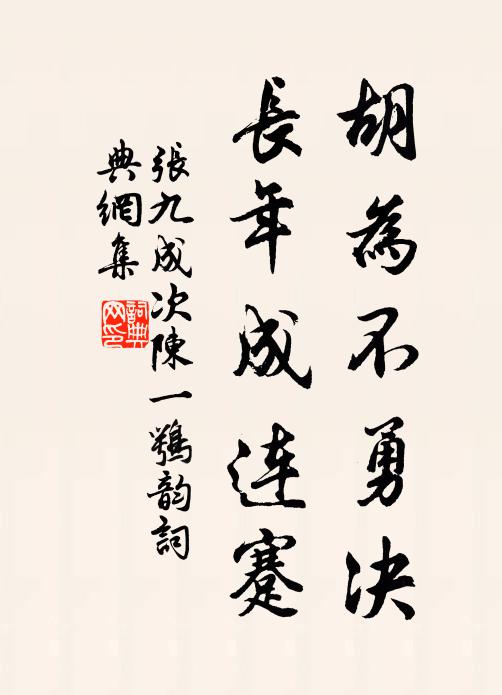 胡為不勇決
長年成連蹇
張九成次陳一鶚韵詞
典網集
詞典網印